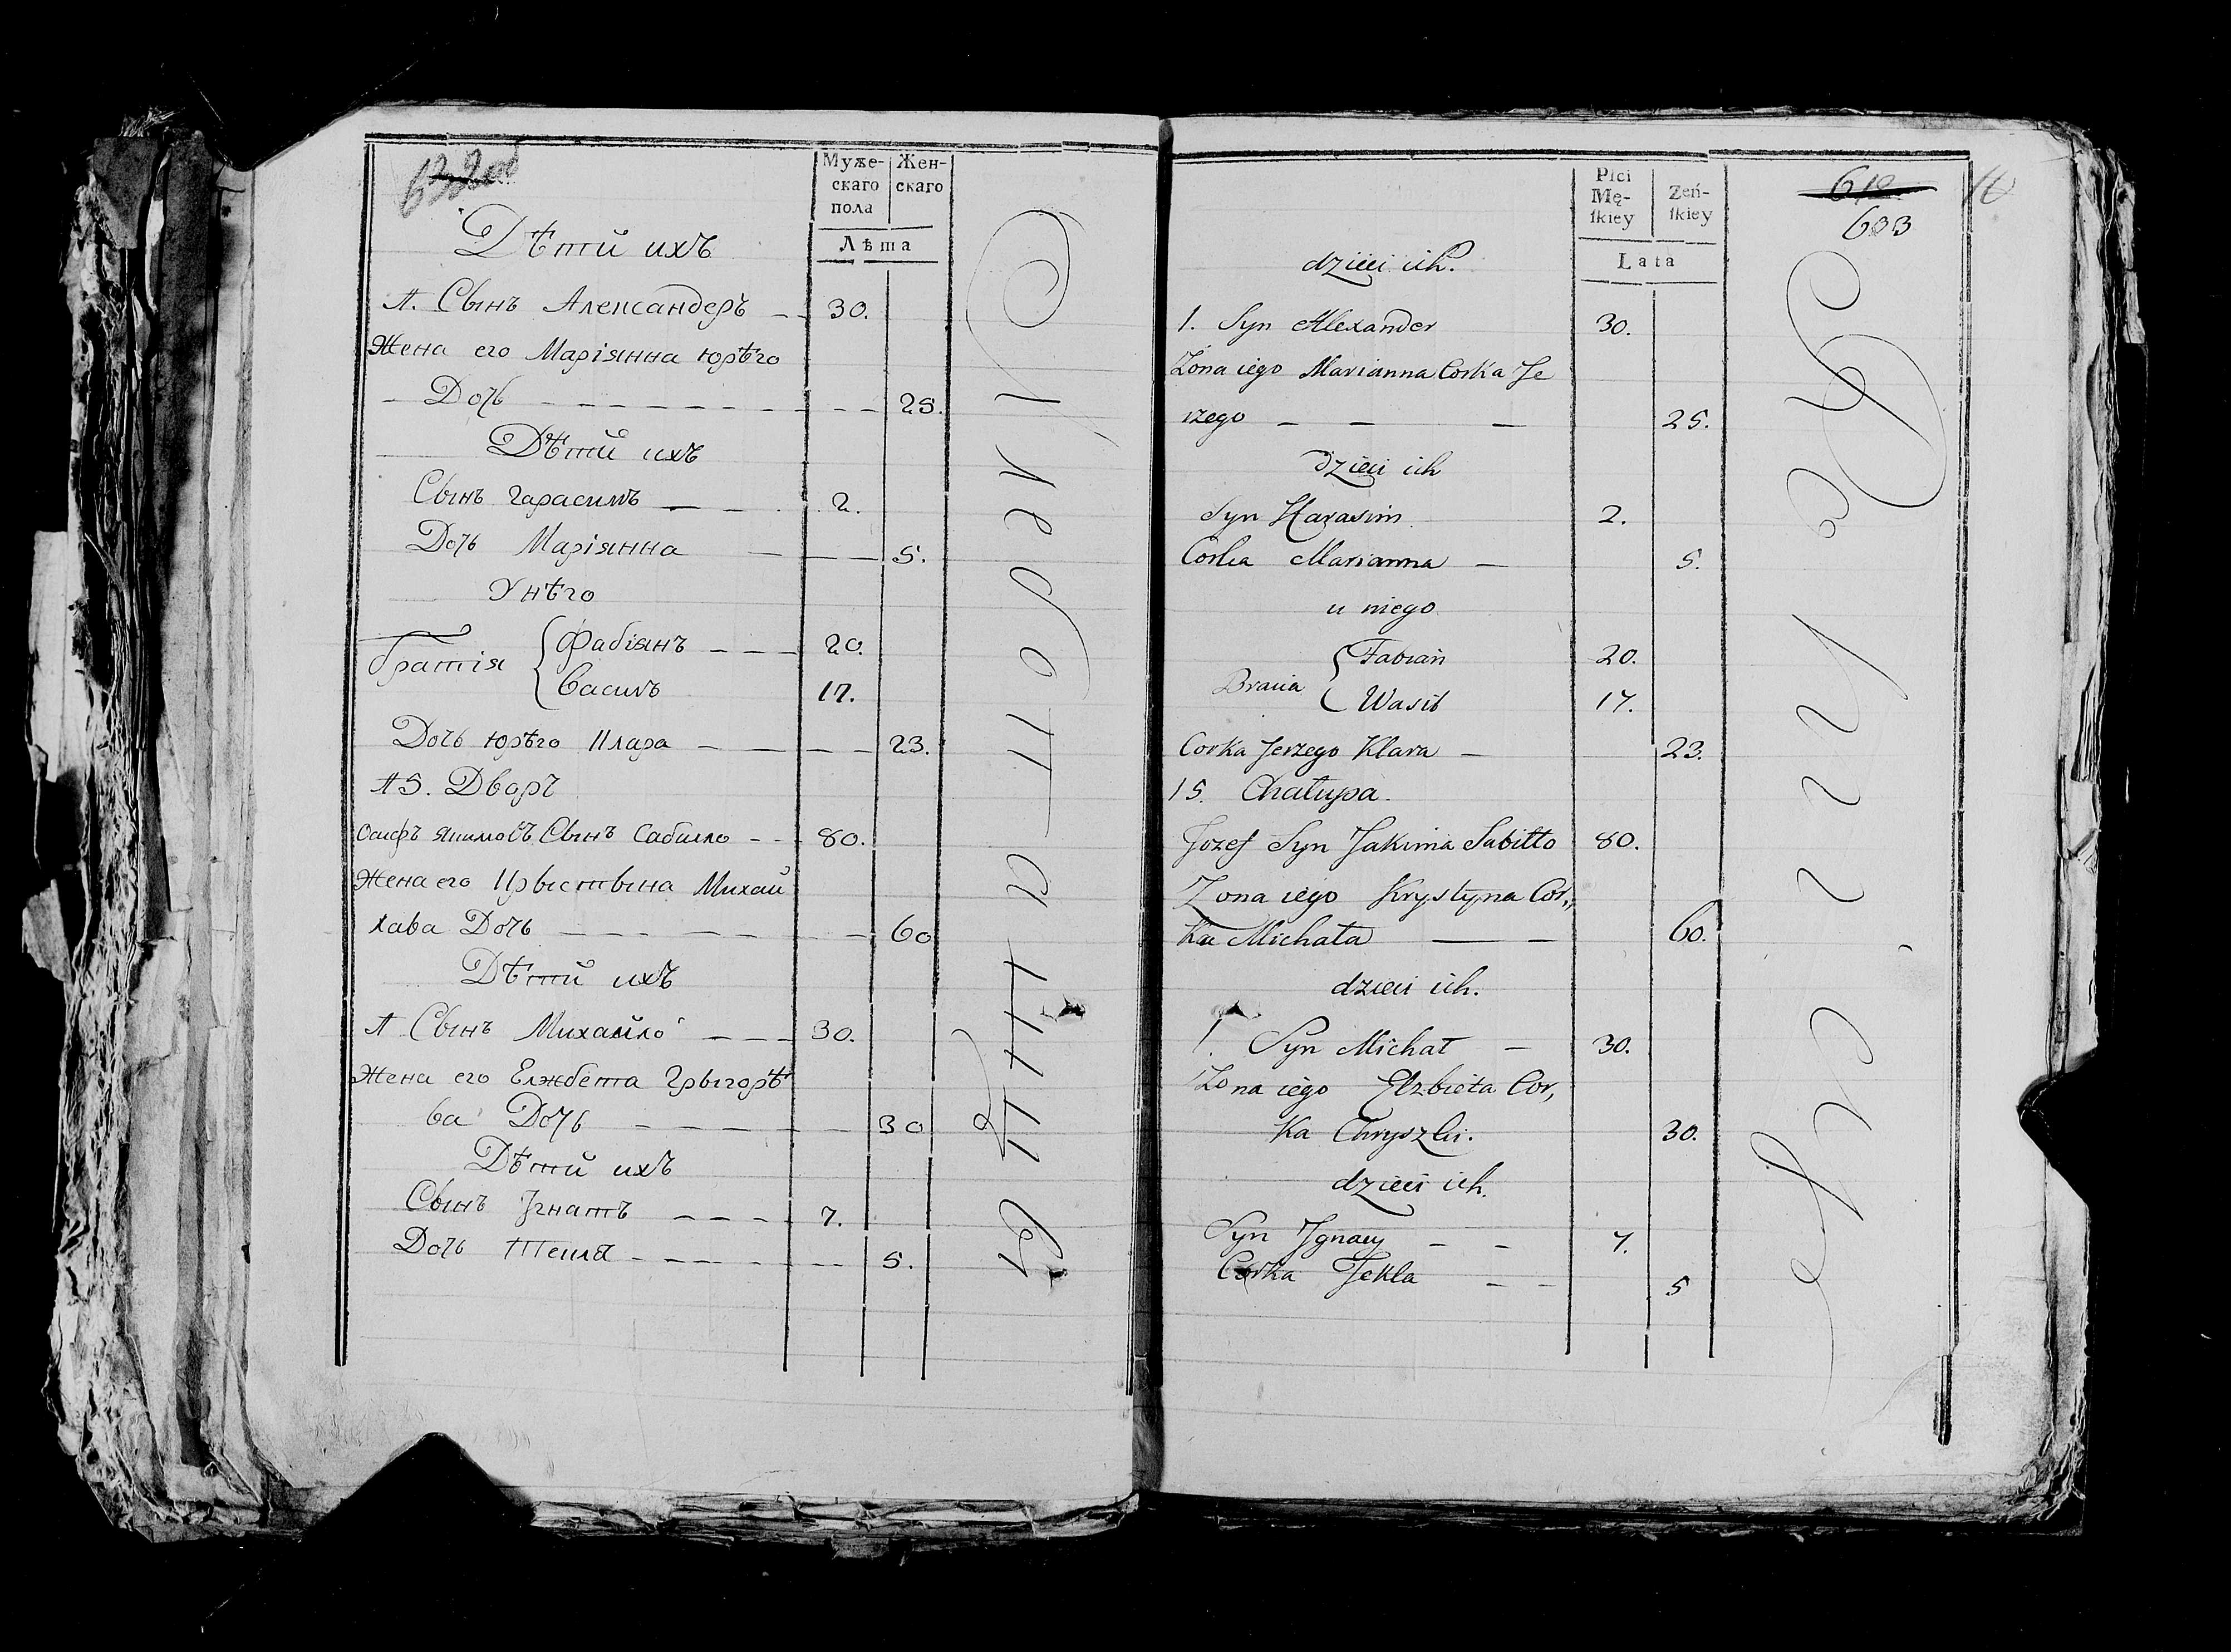 Муже-
скаго
пола
Жен-
скаго
Лѣта
Дѣтй ихъ
1. Сынъ Александеръ 30.
Жена его Маріянна Юрѣго
Дочь 25.
Дѣтй ихъ
Сынъ Гарасимъ 2.
Дочь Маріянна 5.
Унѣго
братія { Фабіянъ 20.
Василь 17.
Дочь Юрѣго Клара 23.
15. Дворъ
Осифъ Якимовъ Сынъ Сабилло 80.
Жена его Крыстына Михай
лава Дочь 60
Дѣтй ихъ
1 Сынъ Михайло 30.
Жена его Елжбета Грыгорѣ
ва Дочь 30
Дѣтй ихъ
Сынъ Iгнатъ 7.
Дочь Текля 5.
Płci
Mę-
ſkiey
Żeń-
ſkiey
Lata
633
dzieci ich.
1. Syn Alexander 30.
Żona iego Marianna Corka Je
rzego 25.
dzieci ich
Syn Harasim 2.
Corka Marianna 5.
u niego
Bracia { Fabian 20.
Wasil 17.
Corka Jerzego Klara 23.
15. Chałupa.
Jozef Syn Jakima Sabiłło 80.
Zona iego Krystyna Cor,,
ka Michała 60.
dzieci ich.
1. Syn Michał 30.
Zona iego Elzbieta Cor,
ka 30.
dzieci ich.
Syn Jgnacy 7.
Corka Tekla 5